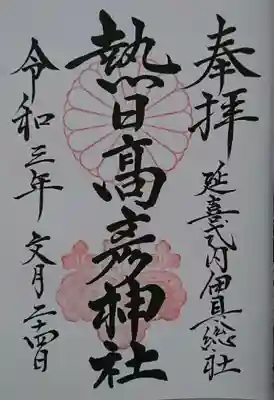 奉拝
延喜式内伊具総社
熱日高彦神社
令和三年 文月二十四日